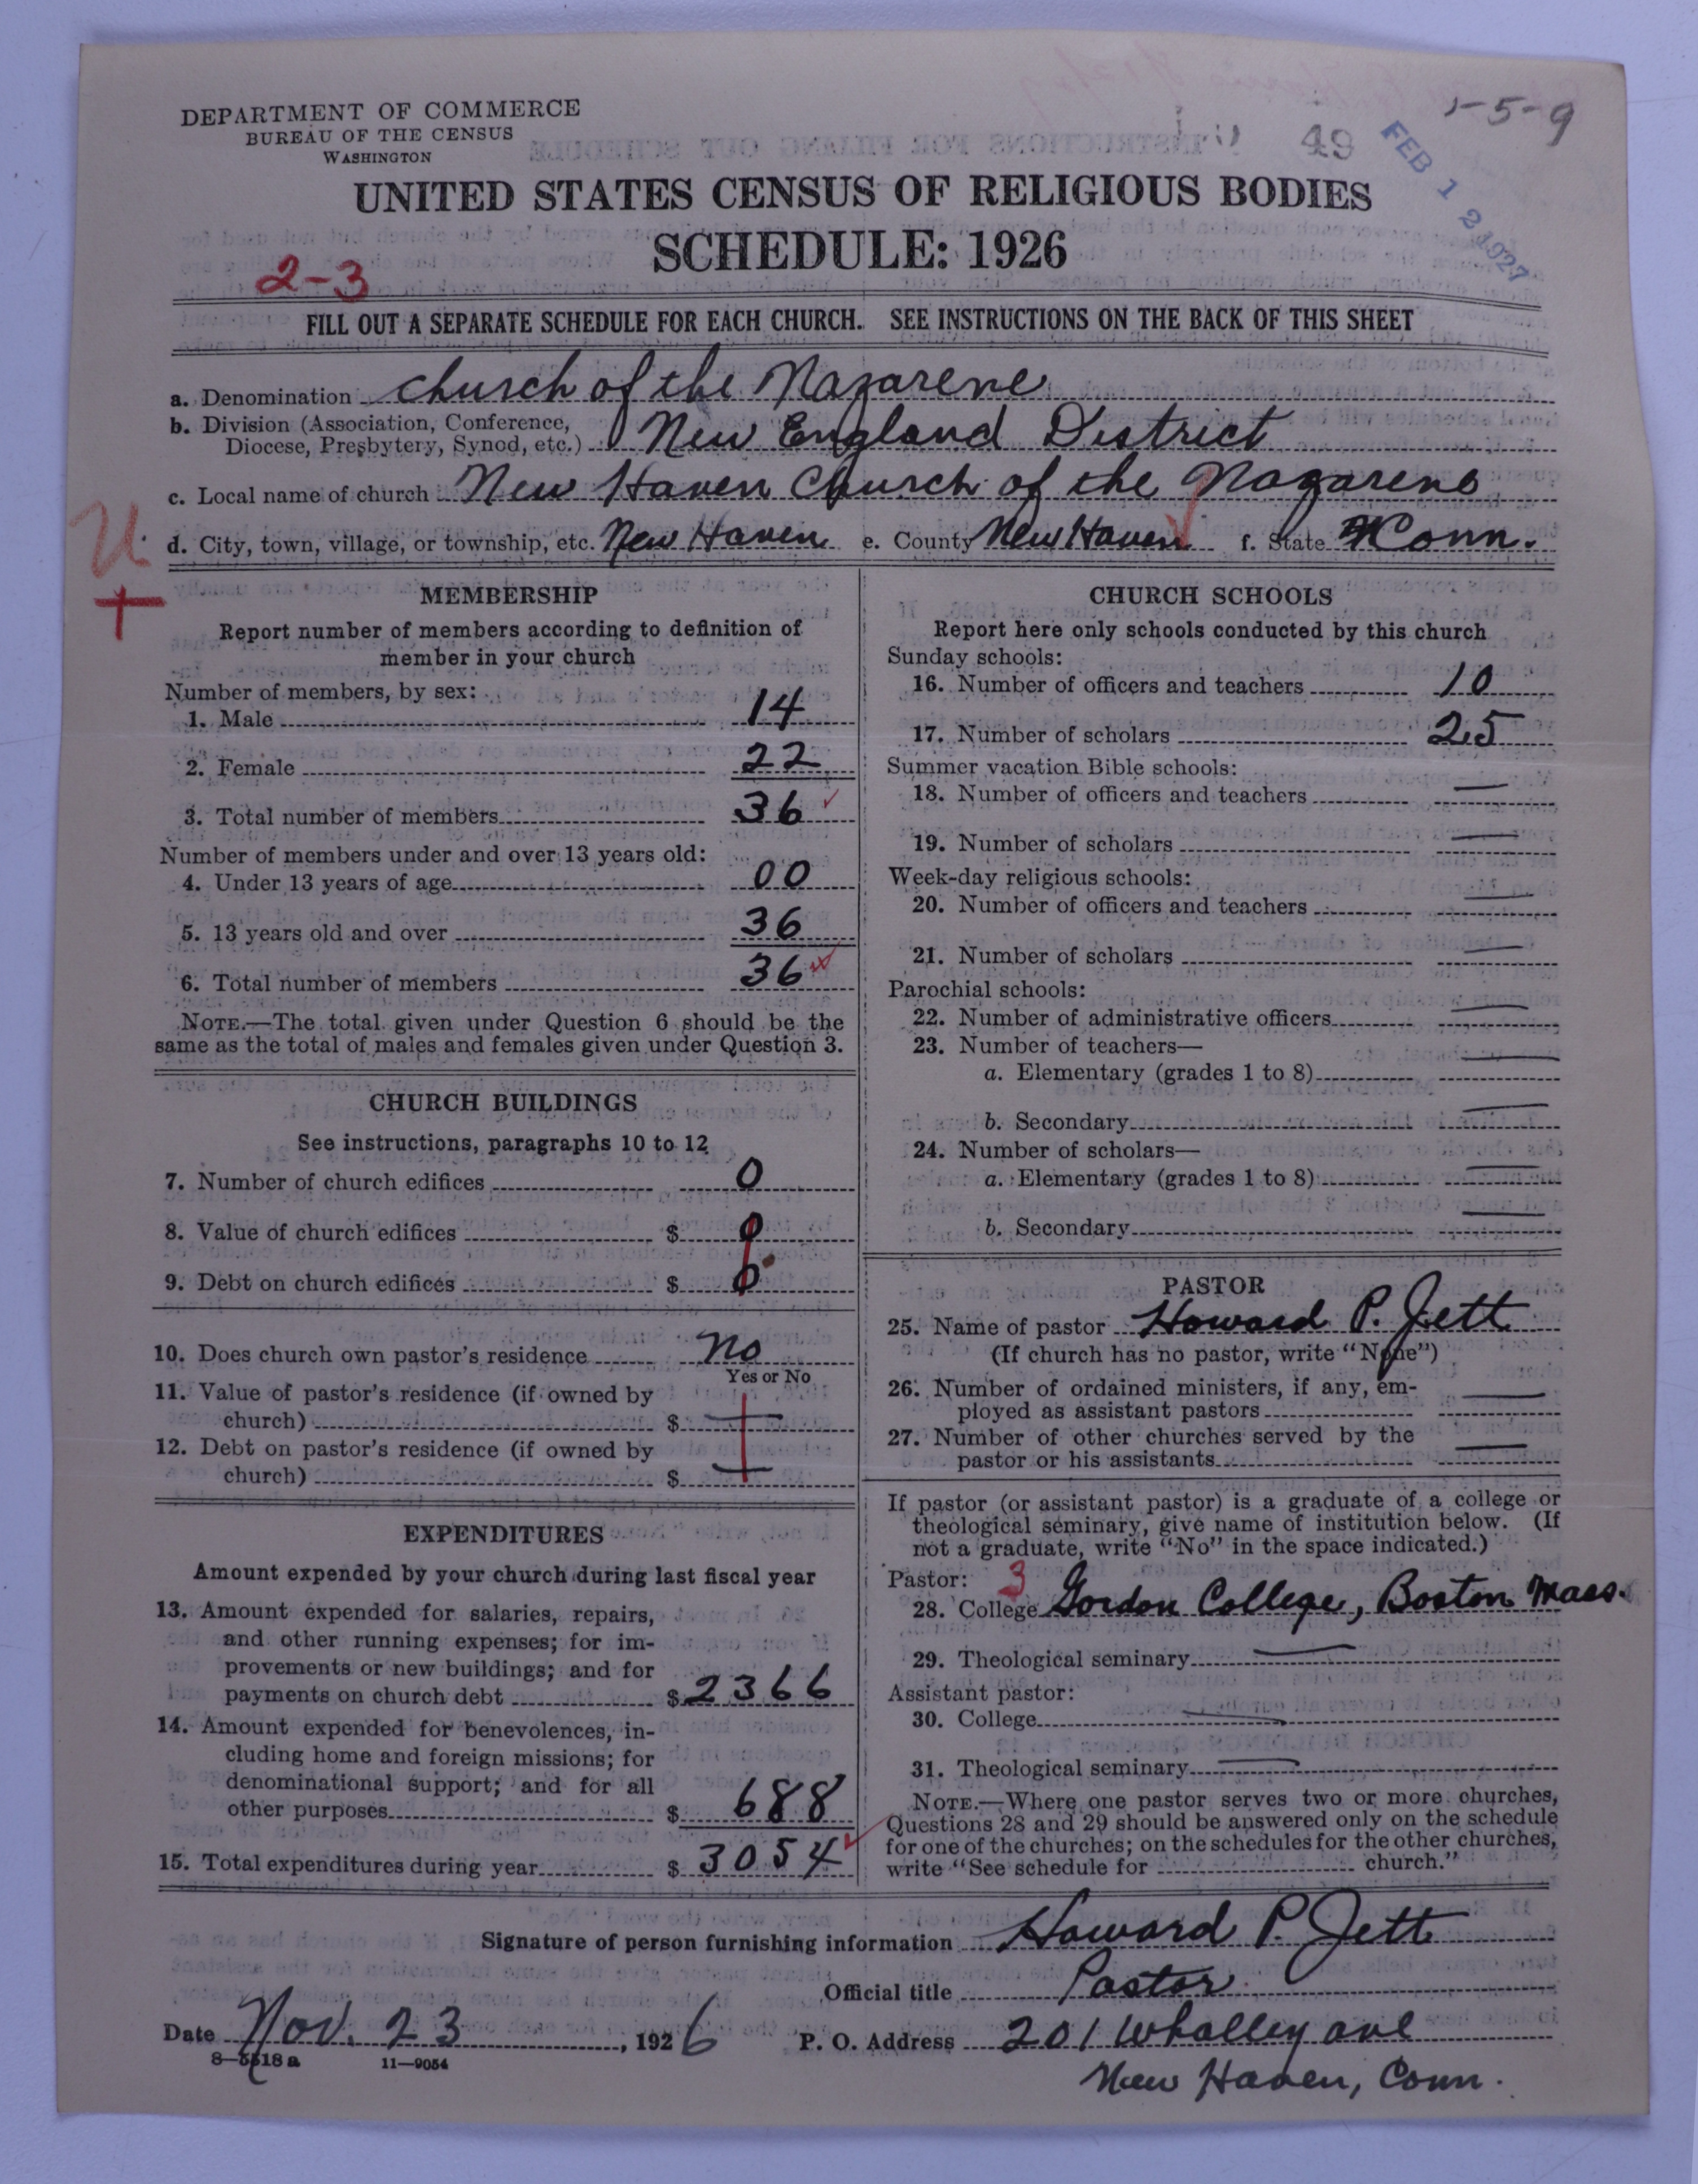 DEPARTMENT OF COMMERCE
BUREAU OF THE CENSUS
WASHINGTON
-5-9
49
FEB 12 1927
UNITED STATES CENSUS OF RELIGIOUS BODIES
SCHEDULE: 1926
2-3
FILL OUT A SEPARATE SCHEDULE FOR EACH CHURCH. SEE INSTRUCTIONS ON THE BACK OF THIS SHEET
a. Denomination church of the Nazarene
b. Division (Association, Conference,
Diocese, Presbytery, Synod, etc.) New England District
c. Local name of church New Haven Church of the Nazarene
d. City, town, village, or township, etc. New Haven e. County New Haven f. State Conn.
U
MEMBERSHIP
Report number of members according to definition of
member in your church
Number of members, by sex:
1. Male 14
2. Female 22
3. Total number of members 36
Number of members under and over 13 years old:
4. Under 13 years of age 00
5. 13 years old and over 36
6. Total number of members 36
NOTE.—The total given under Question 6 should be the
same as the total of males and females given under Question 3.
CHURCH BUILDINGS
See instructions, paragraphs 10 to 12
7. Number of church edifices 0
8. Value of church edifices $ 0
9. Debt on church edifices $ 0
10. Does church own pastor's residence no
Yes or No
11. Value of pastor's residence (if owned by
church) $ —
12. Debt on pastor's residence (if owned by
church) $ —
EXPENDITURES
Amount expended by your church during last fiscal year
13. Amount expended for salaries, repairs,
and other running expenses; for im-
provements or new buildings; and for
payments on church debt $ 2366
14. Amount expended for benevolences, in-
cluding home and foreign missions; for
denominational support; and for all
other purposes $ 688
15. Total expenditures during year $ 3054
CHURCH SCHOOLS
Report here only schools conducted by this church
Sunday schools:
16. Number of officers and teachers 10
17. Number of scholars 25
Summer vacation Bible schools:
18. Number of officers and teachers —
19. Number of scholars —
Week-day religious schools:
20. Number of officers and teachers —
21. Number of scholars —
Parochial schools:
22. Number of administrative officers —
23. Number of teachers—
a. Elementary (grades 1 to 8) —
b. Secondary —
24. Number of scholars—
a. Elementary (grades 1 to 8) —
b. Secondary —
PASTOR
25. Name of pastor Howard P. Jett
(If church has no pastor, write "None")
26. Number of ordained ministers, if any, em-
ployed as assistant pastors —
27. Number of other churches served by the
pastor or his assistants —
If pastor (or assistant pastor) is a graduate of a college or
theological seminary, give name of institution below. (If
not a graduate, write "No" in the space indicated.)
Pastor: 3
28. College Gordon College, Boston Mass.
29. Theological seminary —
Assistant pastor:
30. College —
31. Theological seminary —
NOTE.—Where one pastor serves two or more churches,
Questions 28 and 29 should be answered only on the schedule
for one of the churches; on the schedules for the other churches,
write "See schedule for church."
Signature of person furnishing information Howard P. Jett
Official title Pastor
Date Nov. 23, 1926 P. O. Address 201 Whalley ave
8—5518a 11—9054
New Haven, Conn.